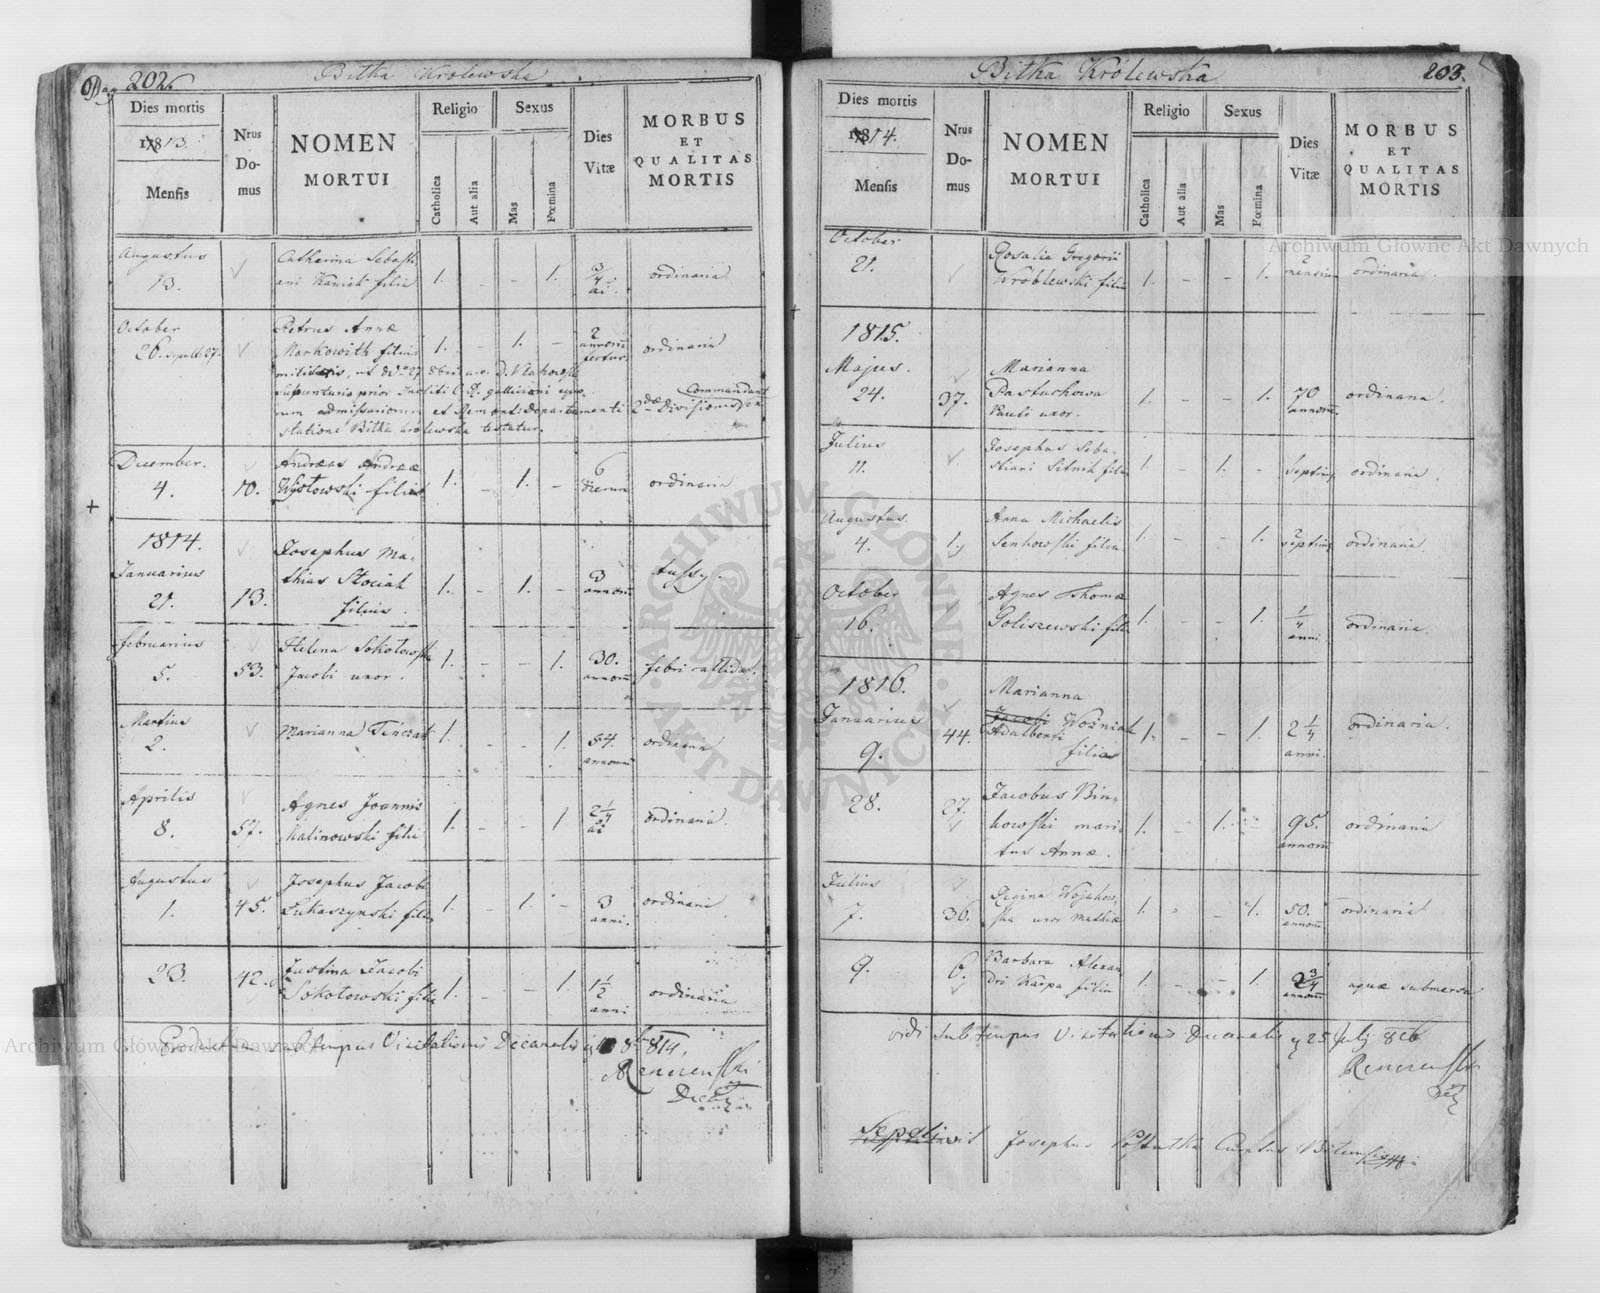 Pag 202.
Bitka Krolewska
Dies mortis
1813.
Mensis
Nrus
Do-
mus
NOMEN
MORTUI
Religio
Catholica
Aut alia
Sexus
Mas
Fœmina
Dies
Vitæ
MORBUS
ET
QUALITAS
MORTIS
Augustus
13.
Catharina Sebasti
ani Kaniek filia
1. - - 1.
3/4
ai.
ordinaria
October
26. sepult. 27.
Petrus Annæ
Markowith filius
1. - 1. -
2
annorū
fertur.
ordinaria
Commandant
statione Bitka królewska testatur.
December.
4.
10.
Andreas Andreæ
Wysłowski filius
1. - 1. -
6
dierum
ordinaria
1814.
Januarius
21.
13.
Josephus Ma-
thias Stociak
filius.
1. - 1. -
3
annorū
tussy.
Februarius
5.
53.
Helena Sokołowska
Jacobi uxor.
1. - - 1.
30.
annorū
febri callida.
Martius
2.
Marianna Tenczar
1. - - 1.
54.
annorū
ordinaria
Aprilis
8.
57.
Agnes Joannis
Malinowski filia
1. - - 1
2 1/4
ai
ordinaria.
Augustus
1.
45.
Josephus Jacobi
Łukaszynski filius
1. - 1. -
3
anni.
ordinaria
23.
42.
Justina Jacobi
Sokołowski filia
1. - - 1.
1 1/2
anni
ordinaria
Productum sub tempus Visitationis Decanalis
814.
Bitka Królewska
203.
Dies mortis
1814.
Mensis
Nrus
Do-
mus
NOMEN
MORTUI
Religio
Catholica
Aut alia
Sexus
Mas
Fœmina
Dies
Vitæ
MORBUS
ET
QUALITAS
MORTIS
October
21.
Rosalia Gregorii
Wroblewski filia
1. - - 1.
2
mensium
ordinaria.
1815.
Majus.
24.
37.
Marianna
Pastuchowa
Pauli uxor.
1. - - 1.
70
annorū.
ordinaria.
Julius
11.
Josephus Seba-
stiani Sitnik filius
1. - 1. -
Septim
ordinaria.
Augustus.
4.
1.
Anna Michaelis
Senkowski filia.
1. - - 1.
septim
ordinaria.
October
16.
Agnes Thomæ
Goliszewski filia
1. - - 1.
1/4
anni
ordinaria.
1816.
Januarius
9.
44.
Marianna
Jacobi Woźniak
Adalberti
filia
1. - - 1.
2 1/4
anni.
ordinaria.
28.
27.
Jacobus Bin-
kowski mari-
tus Annæ.
1. - 1. -
95.
annorū
ordinaria
Julius
7.
36.
Regina Wojakow-
ska uxor Mathiæ
1. - 1.
50.
annorū
ordinaria
9.
6.
Barbara Alexan
dri Karpa filia
1. - - 1.
2 3/4
annorū
aquæ submersa
vidi sub tempus Visitationis Decanalis 25 Julij 816
Sepelivit Josephus Curatus Bitensis
Archiwum Główne Akt Dawnych
Archiwum Główne Akt Dawnych
ARCHIWUM GŁÓWNE
AKT DAWNYCH